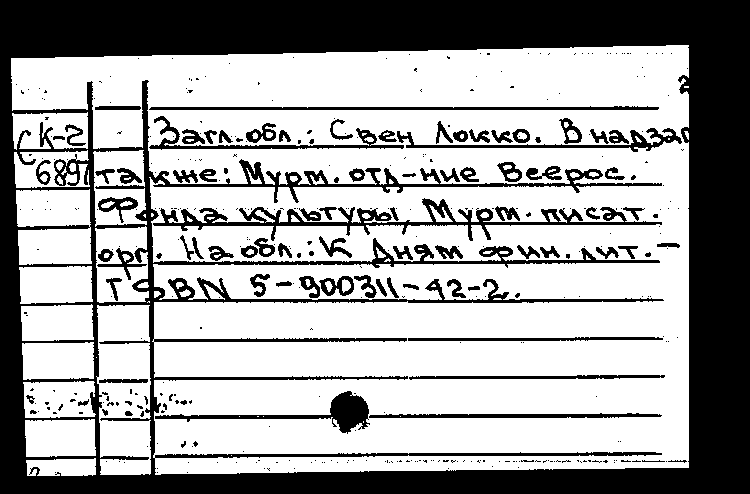 2
СК-2 Загл.обл.: Свен Локко. В надзаг
6897 также: Мурм. отд-ние Всерос.
Фонда культуры, Мурм. писат.
орг. На обл.: К Дням фин. лит. —
ISBN 5-900311-42-2.